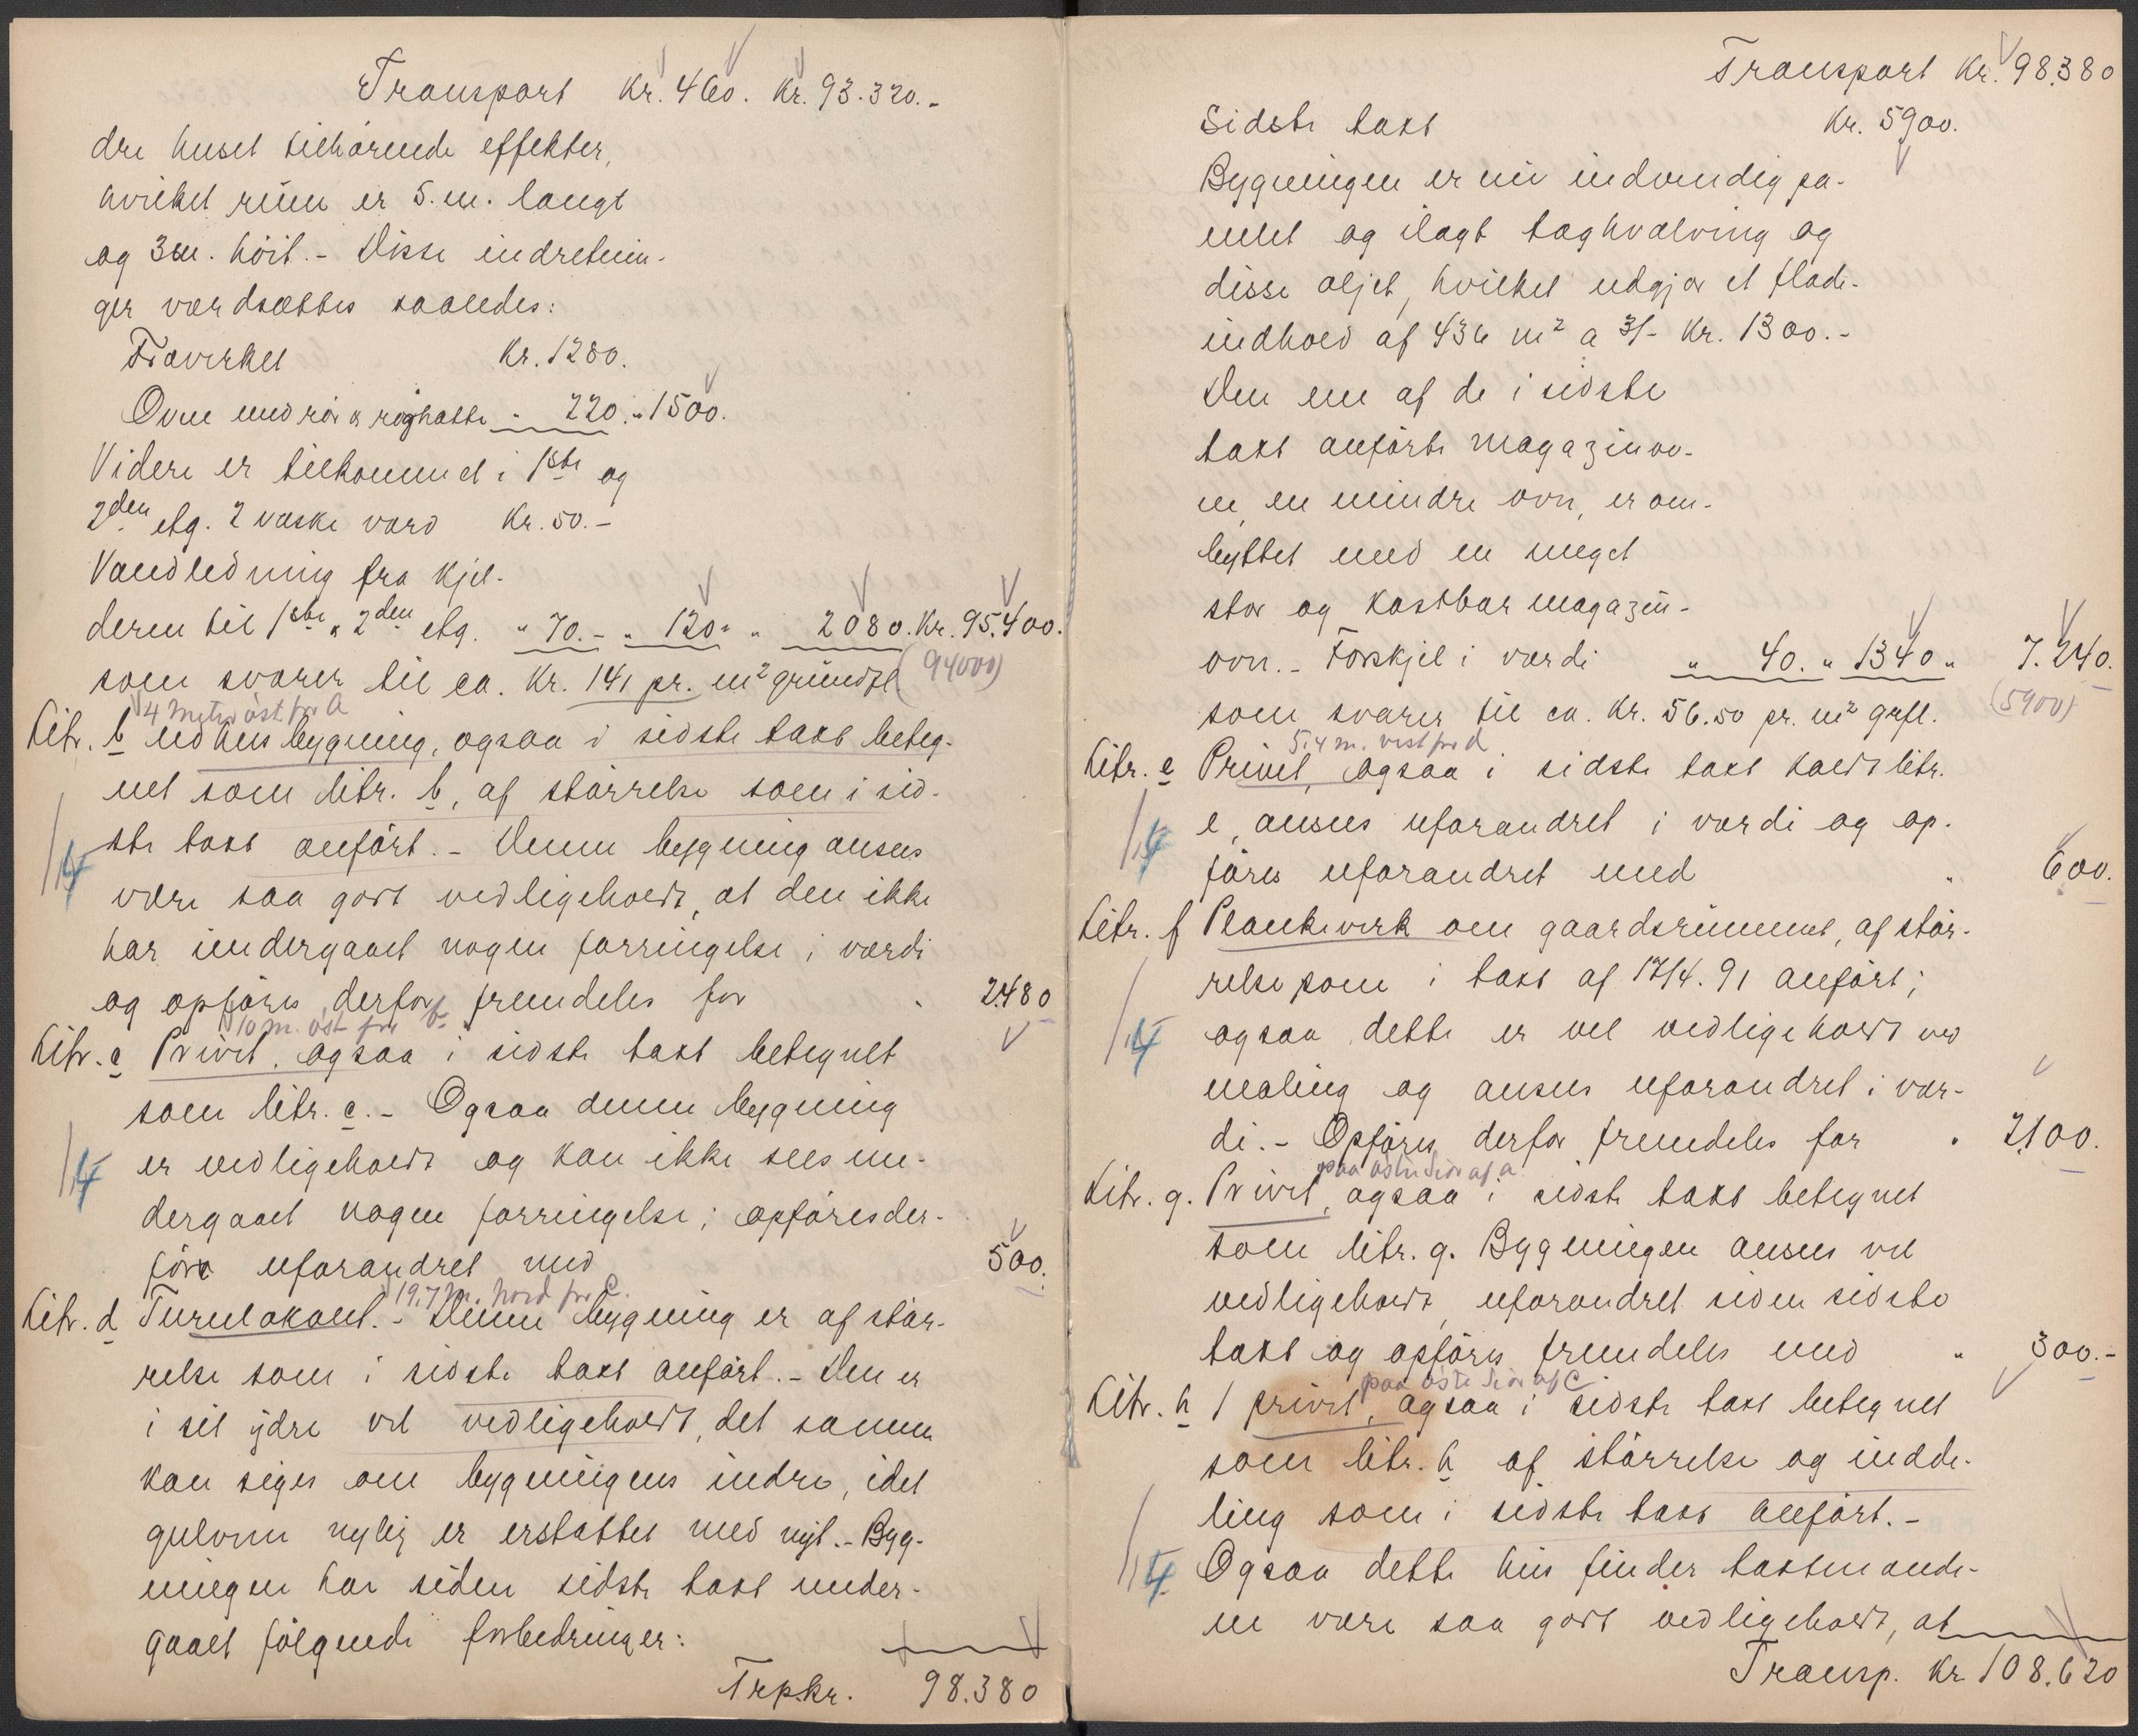 Transport Kr. 460. Kr. 93.320.-
dre huset tilhørende effekter,
hvilket rum er 5. m. langt
og 3 m. høit. - Disse indretnin-
ger værdsættes saaledes:
Træverket Kr. 1280.
Ovne med rør & røghatte " 220. " 1500.
Videre er tilkommet i 1ste og
2den etg. 2 vaske værd Kr. 50.-
Vandledning fra kjel-
deren til 1ste & 2den etg. " 70.- " 120. " 2080. Kr. 95.400.
som svarer til ca. Kr. 141 pr. m² grundfl. (94000)
4 meter øst for A
Litr. b Udhusbygning, ogsaa i sidste taxt beteg-
net som litr. b, af størrelse som i sid-
ste taxt anført. - Denne bygning ansees
være saa godt vedligeholdt, at den ikke
har undergaaet nogen forringelse i værdi
og opføres derfor fremdeles for " 2480
10 m. øst for b
Litr. c Privet, ogsaa i sidste taxt betegnet
som litr. c. - Ogsaa denne bygning
er vedligeholdt og kan ikke sees un-
dergaaet nogen forringelse; opføres der-
for uforandret med 500.
19,7 m. nord for C.
Litr. d Turnlokalet. - Denne bygning er af stør-
relse som i sidste taxt anført. - Den er
i sit ydre vel vedligeholdt, det samme
kan siges om bygningens indre, idet
gulvene nylig er erstattet med nyt. - Byg-
ningen har siden sidste taxt under-
gaaet følgende forbedringer:
Trp. kr. 98.380
Transport Kr. 98.380
Sidste taxt Kr. 5900.
Bygningen er nu indvendig pa-
nelet og ilagt taghvælving og
disse oljet, hvilket udgjør et flade-
indhold af 436 m² a 3/- Kr. 1300.-
Den ene af de i sidste
taxt anførte magazinov-
ne, en mindre ovn, er om-
byttet med en meget
stor og kostbar magazin-
ovn. - Forskjel i værdi " 40. " 1340 " 7.240.
som svarer til ca. Kr. 56.50 pr. m² grfl. (5900)
5,4 m. vest for d
Litr. e Privet, ogsaa i sidste taxt kaldt litr.
e, ansees uforandret i værdi og op-
føres uforandret med " 600.
Litr. f Plankeverk om gaardsrummet, af stør-
relse som i taxt af 17/4. 91 anført;
ogsaa dette er vel vedligeholdt ved
maling og ansees uforandret i vær-
di. - Opføres derfor fremdeles for " 2100.
paa østre side af a
Litr. g. Privet, ogsaa i sidste taxt betegnet
som litr. g. Bygningen ansees vel
vedligeholdt, uforandret siden sidste
taxt og opføres fremdeles med " 300.-
paa østre side af C
Litr. h 1 privet, ogsaa i sidste taxt betegnet
som litr. h af størrelse og indde-
ling som i sidste taxt anført. -
Ogsaa dette hus finder taxtmænde-
ne være saa godt vedligeholdt, at
Transp. Kr 108.620